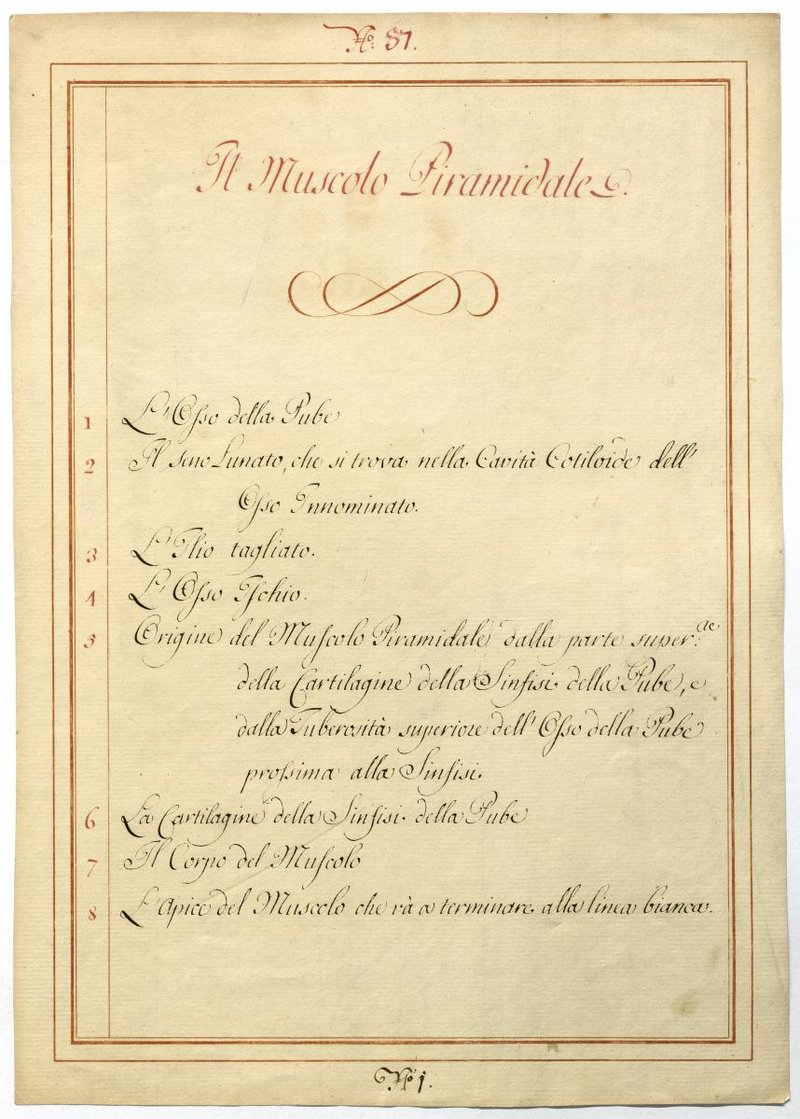 No: 87.
Il Muscolo Piramidale.
1 L'Osso della Pube
2 Il seno Lunato, che si trova nella Cavità Cotiloide dell'
Osso Innominato.
3 L'Ilio tagliato.
4 L'Osso Ischio.
5 Origine del Muscolo Piramidale dalla parte super:re
della Cartilagine della Sinfisi della Pube, e
dalla Tuberosità superiore dell'Osso della Pube
prossima alla Sinfisi.
6 La Cartilagine della Sinfisi della Pube
7 Il Corpo del Muscolo
8 L'Apice del Muscolo che và a terminare alla linea bianca.
No 1.